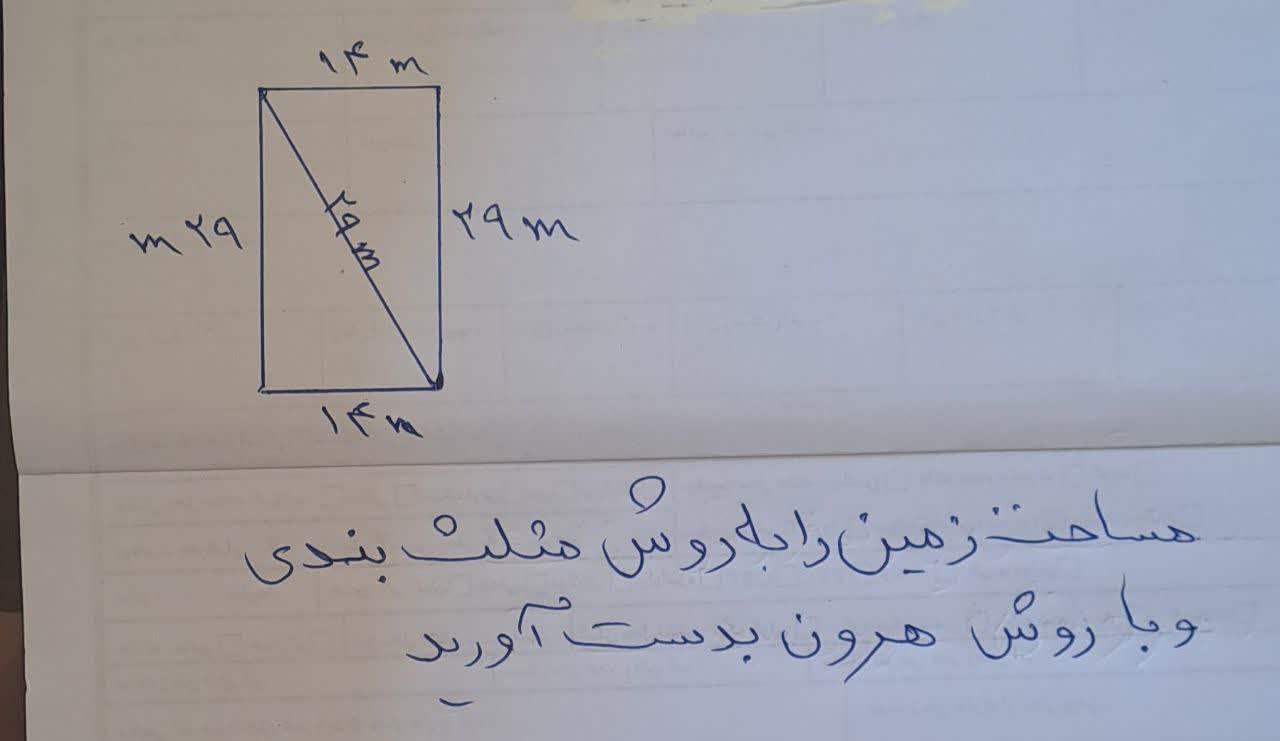 ۱۴ m
m ۲۹
۲۹ m
۱۴ m
مساحت زمین را به روش مثلث بندی
و با روش هرون بدست آورید